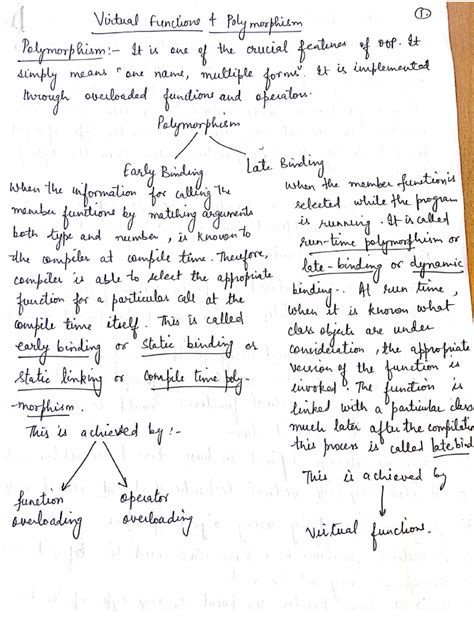 Virtual Functions & Polymorphism
1.
Polymorphism:- It is one of the crucial features of OOP. It
simply means "one name, multiple forms". It is implemented
through overloaded functions and operators.
Polymorphism
Early Binding
When the information for calling the
member functions by matching arguments
both type and number, is known to
the compiler at compile time. Therefore,
compiler is able to select the appropiate
function for a particular call at the
compile time itself. This is called
early binding or static binding or
static linking or compile time poly-
-morphism.
This is achieved by :-
function
overloading
operator
overloading
Late Binding
When the member function is
selected while the program
is running. It is called
run-time polymorphism or
late-binding or dynamic
binding. At run time,
when it is known what
class objects are under
consideration, the appropiate
version of the function is
invoked. The function is
linked with a particular class
much later after the compilation
this process is called late bind
This is achieved by
Virtual functions.